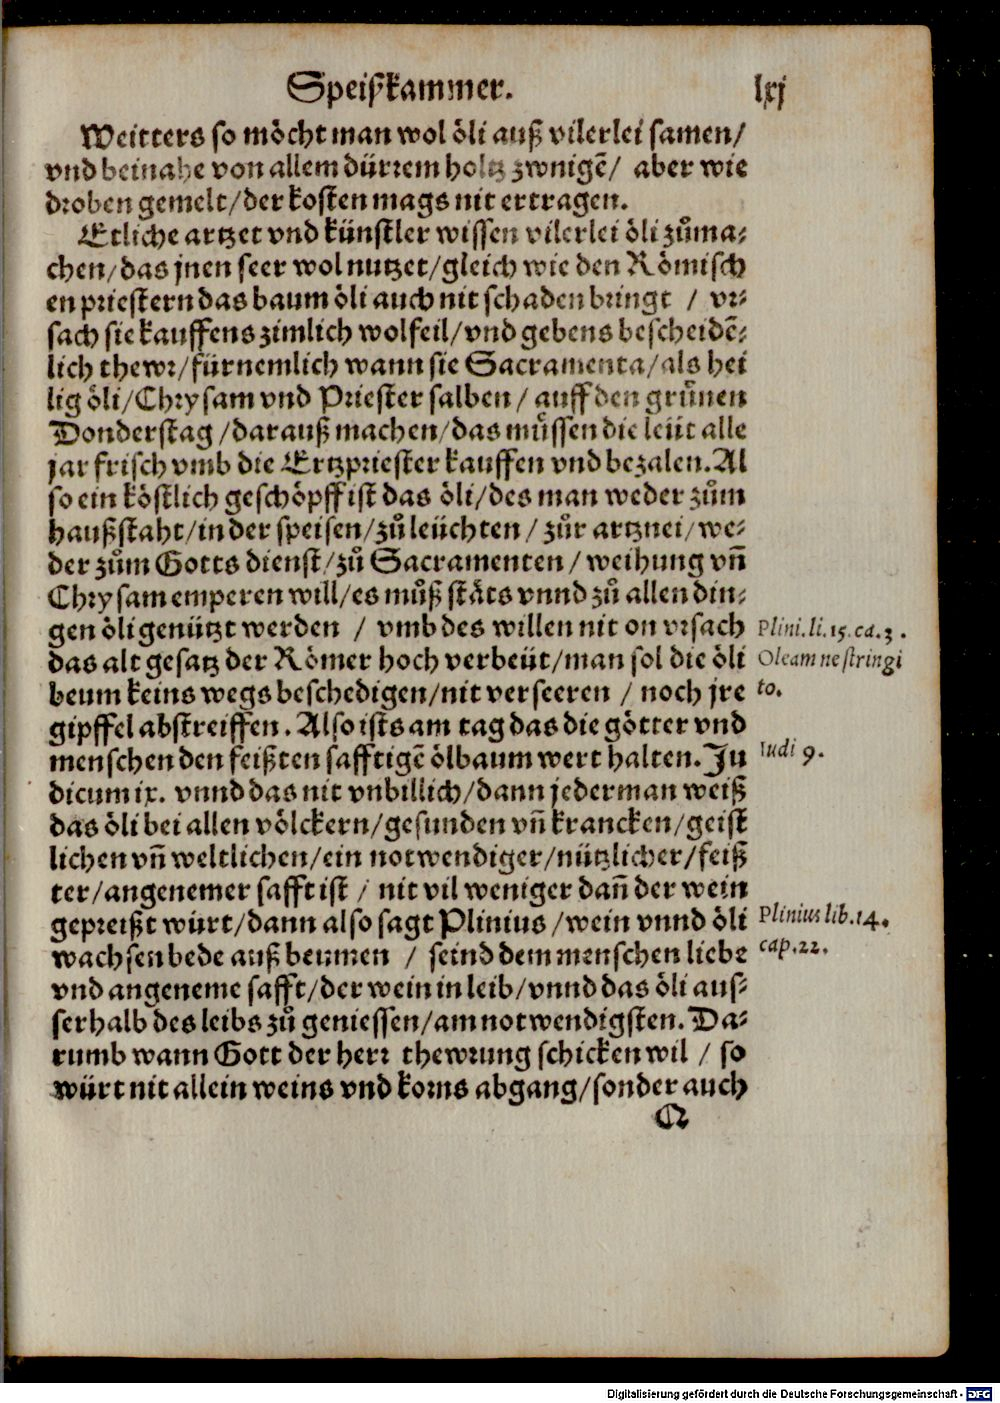 Speißkammer. lxj
Weitters so möcht man wol öli auß vilerlei samen/
vnd beinahe von allem dürrem holtz zwnigẽ/ aber wie
droben gemelt/der kosten mags nit ertragen.
Etliche artzet vnd künstler wissen vilerlei öli zůma⸗
chen/das jnen seer wol nutzet/gleich wie den Römisch
en priestern das baum öli auch nit schaden bringt / vr⸗
sach sie kauffens zimlich wolfeil/vnd gebens bescheidẽ⸗
lich thewr/fürnemlich wann sie Sacramenta/als hei
lig öli/Chrysam vnd Priester salben/ auff den grůnen
Donderstag/darauß machen/das můssen die leüt alle
jar frisch vmb die Ertzpriester kauffen vnd bezalen. Al
so ein köstlich geschöpff ist das öli/des man weder zům
haußstaht/in der speisen/zů leüchten/ zůr artznei/we⸗
der zům Gotts dienst/zů Sacramenten/weihung vñ
Chrysam emperen will/es můß stäts vnnd zů allen din⸗
gen öli genützt werden / vmb des willen nit on vrsach
das alt gesatz der Römer hoch verbeüt/man sol die öli
beum keins wegs beschedigen/nit verseeren / noch jre
gipffel abstreiffen. Also ists am tag das die götter vnd
menschen den feißten safftigẽ ölbaum wert halten. Ju
dicum ix. vnnd das nit vnbillich/dann jederman weiß
das öli bei allen völckern/gesunden vñ krancken/geist
lichen vñ weltlichen/ein notwendiger/nützlicher/feiß
ter/angenemer safft ist / nit vil weniger dañ der wein
gepreißt würt/dann also sagt Plinius/wein vnnd öli
wachsen bede auß beumen / seind dem menschen liebe
vnd angeneme safft/der wein in leib/vnnd das öli aus⸗
serhalb des leibs zů geniessen/am notwendigsten. Da⸗
rumb wann Gott der herr thewrung schicken wil / so
würt nit allein weins vnd korns abgang/sonder auch
Q
Plini. li. 15. ca. 3.
Oleam ne stringi
to.
Iudi 9.
Plinius lib. 14.
cap. 22.
Digitalisierung gefördert durch die Deutsche Forschungsgemeinschaft - DFG